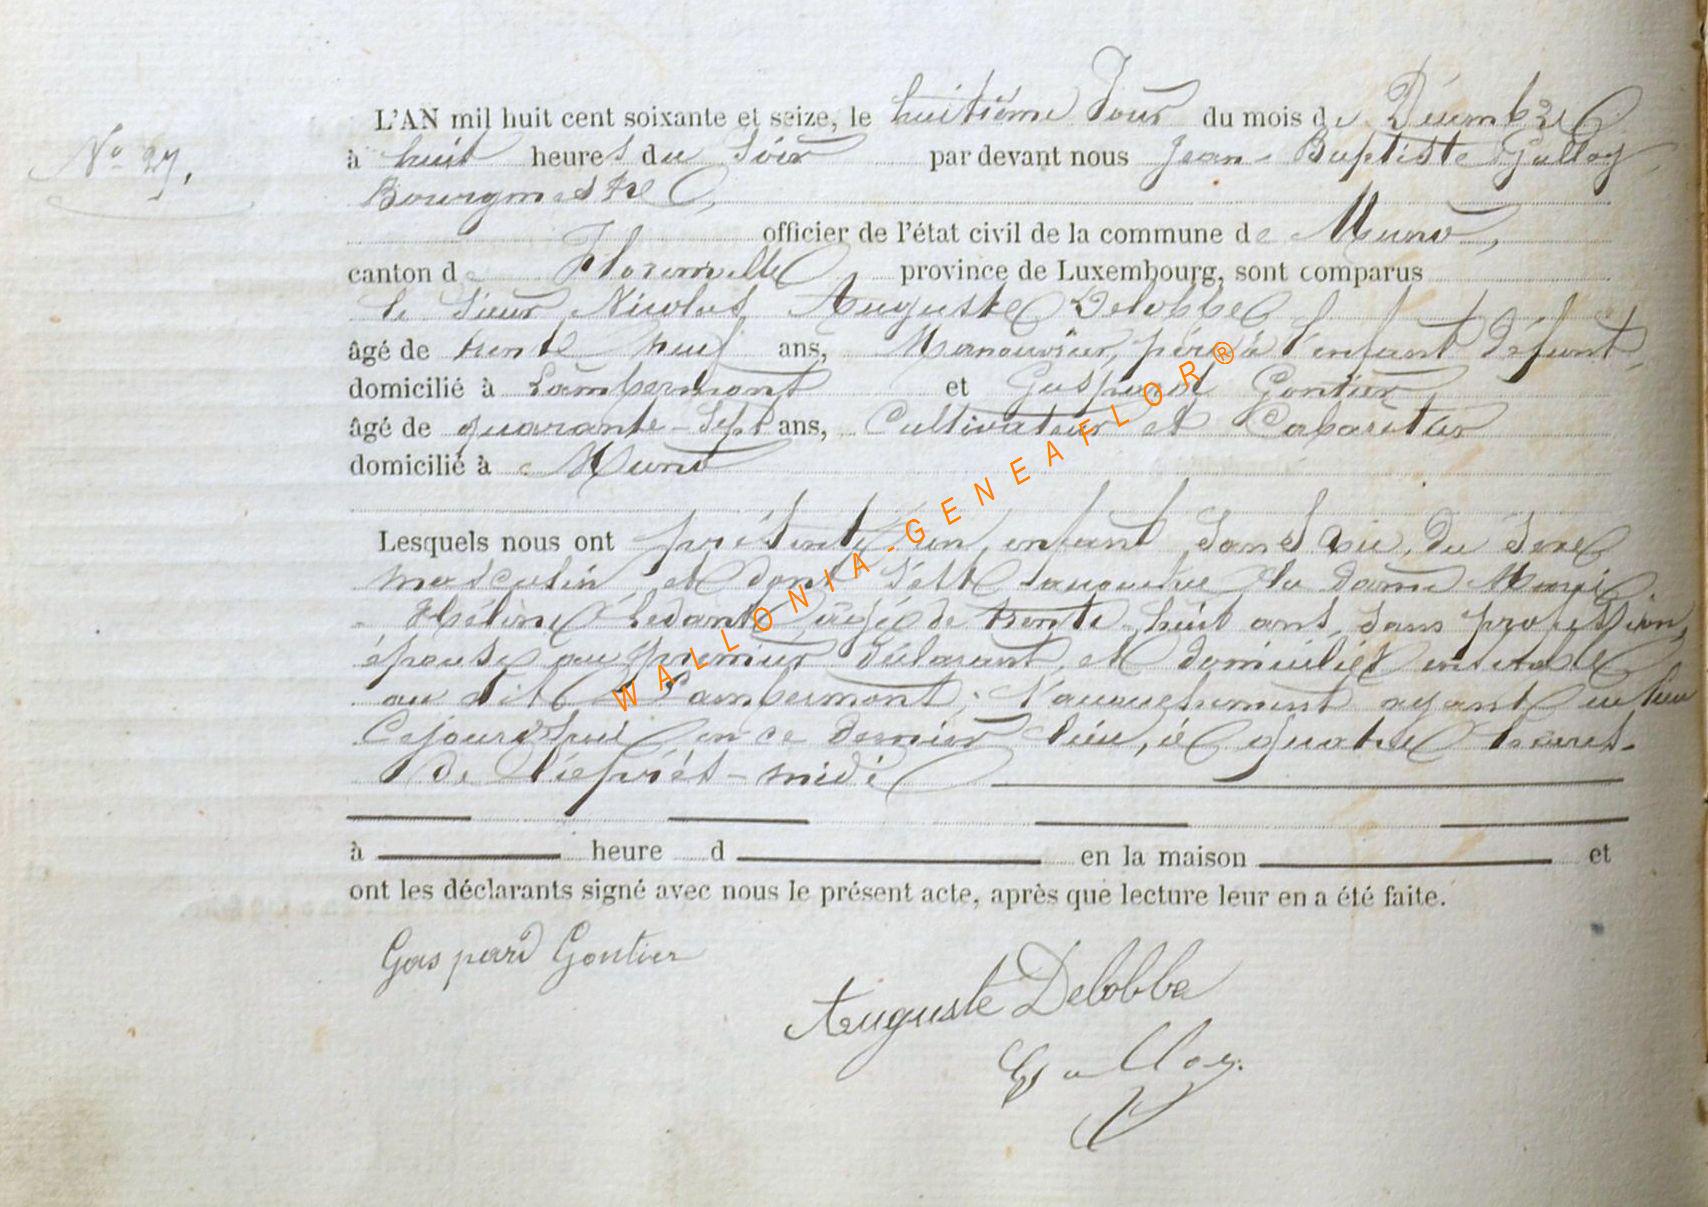 L'AN mil huit cent soixante et seize, le huitième Jour du mois de Décembre
No 27.
à huit heures du Soir par devant nous Jean-Baptiste Galloy
Bourgmestre,
officier de l'état civil de la commune de Muno,
canton de Florenville province de Luxembourg, sont comparus
le Sieur Nicolas Auguste Delobbe
âgé de trente neuf ans, Manouvrier, père à l'enfant défunt
domicilié à Lambermont et Gaspard Gontier
âgé de quarante-Sept ans, Cultivateur et Cabaretier
domicilié à Muno
Lesquels nous ont présenté un enfant Sans vie, du Sexe
masculin, et dont s'est accouchée la dame Marie
Hélène Ledant, âgée de trente-huit ans, Sans profession,
épouse au premier déclarant, et domiciliée
au dit Lambermont; l'accouchement ayant eu lieu
Cejourd'hui en ce dernier lieu, à quatre heures
de l'après-midi
à heure d en la maison et
ont les déclarants signé avec nous le présent acte, après que lecture leur en a été faite.
Gaspard Gontier
Auguste Delobbe
Galloy.
WALLONIA-GENEAFLOR®